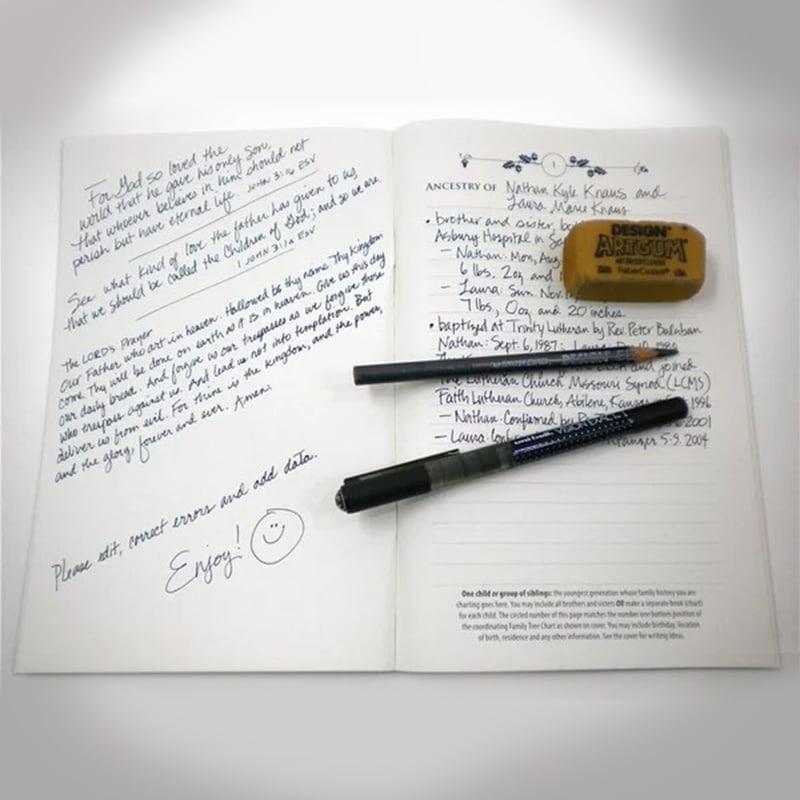 For God so loved the
world that he gave his only Son,
that whoever believes in him should not
perish but have eternal life. JOHN 3:16 ESV
See what kind of love the father has given to us
that we should be called the children of God; and so we are.
1 JOHN 3:1a ESV
The LORD's Prayer
Our Father who art in heaven. Hallowed be thy name. Thy Kingdom
come Thy will be done on earth as it is in heaven. Give us this day
our daily bread. And forgive us our trespasses as we forgive those
who trespass against us. And lead us not into temptation. But
deliver us from evil. For thine is the kingdom, and the power,
and the glory, forever and ever. Amen.
Please edit, correct errors and add data.
Enjoy!
1
ANCESTRY OF Nathan Kyle Knaus and
Laura Marie Knaus
• brother and sister,
Asbury Hospital in
– Nathan: Mon, Aug
6 lbs. 2oz and
– Laura: Sun. Nov.
7 lbs, 0oz and 20 inches.
• baptized at Trinity Lutheran by Rev. Peter Balaban
Nathan: Sept. 6, 1987; Laura:
and joined
The Lutheran Church Missouri Synod (LCMS)
Faith Lutheran Church, Abilene, 1996
– Nathan: Confirmed by 2001
– Laura: 5-9-2004
DESIGN
ARTGUM
DESIGN
uni-ball VISION EXACT
One child or group of siblings: the youngest generation whose family history you are
charting goes here. You may include all brothers and sisters OR make a separate book (chart)
for each child. The circled number of this page matches the number one bottom position of
the coordinating Family Tree Chart as shown on cover. You may include birthday, location
of birth, residence and any other information. See the cover for writing ideas.